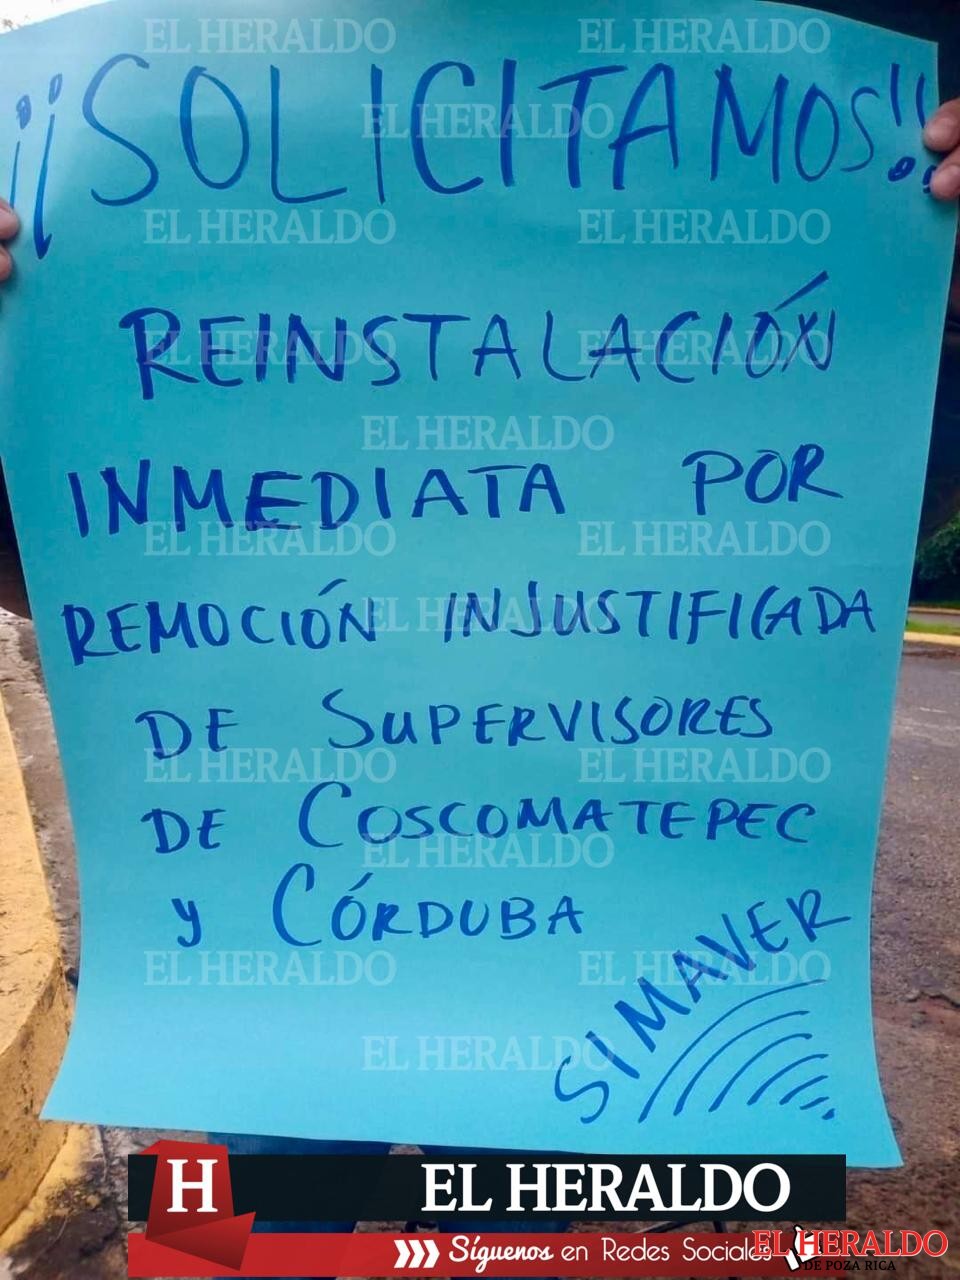 ¡¡SOLICITAMOS!!
REINSTALACIÓN
INMEDIATA POR
REMOCIÓN INJUSTIFICADA
DE SUPERVISORES
DE COSCOMATEPEC
Y CÓRDUBA
SIMAVER
EL HERALDO EL HERALDO
EL HERALDO
EL HERALDO EL HERALDO
EL HERALDO EL HERALDO
EL HERALDO
EL HERALDO EL HERALDO
EL HERALDO
EL HERALDO EL HERALDO
EL HERALDO
EL HERALDO EL HERALDO
EL HERALDO
H EL HERALDO
Síguenos en Redes Sociales
EL HERALDO
DE POZA RICA